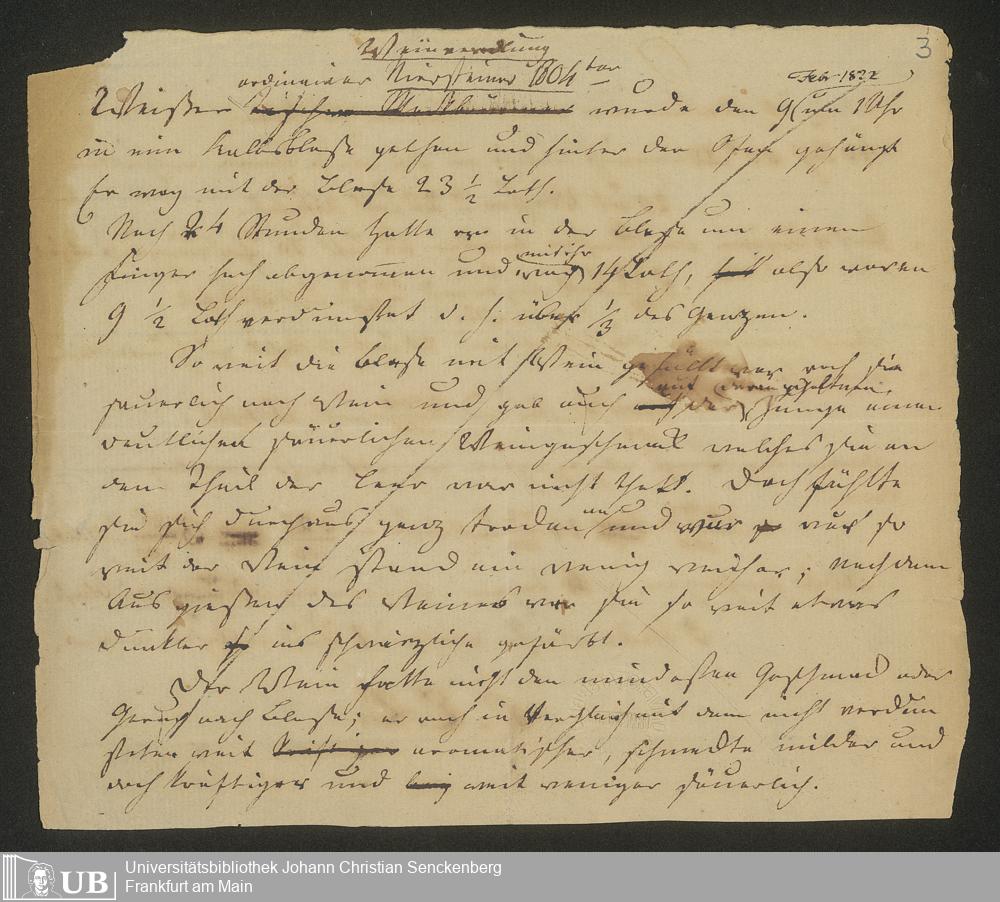 3
Weinveredlung
ordinairer Niersteiner 1804ter
Feb. 1822
Weißer wurde den 9 um 1 Uhr
in eine Kalbsblase gethan und hinter den Ofen gehängt
Er wog mit der Blase 23 1/2 Loth.
Nach 24 Stunden hatte er in der Blase um einen
Finger hoch abgenommen und wog mit ihr 14 Loth, also waren
9 1/2 Loth verdünstet d. h. über 1/3 des Ganzen.
So weit die Blase mit Wein gefüllt war roch sie
säuerlich nach Wein und gab auch der auf daran gehaltenen Zunge einen
deutlichen säuerlichen Weingeschmack welches sie an
dem Theil der leer war nicht that. Doch fühlte
sie sich durchaus ganz troken an und war nur so
weit der Wein stand ein wenig weicher; nach dem
Ausgiessen des Weines war sie so weit etwas
dunkler ins schwärzliche gefärbt.
Der Wein hatte nicht den mindesten Geschmack oder
Geruch nach Blase; er roch in Vergleich mit dem nicht verdün
steten weit aromatischer, schmeckte milder und
doch kräftiger und weit weniger säuerlich.
UB
Universitätsbibliothek Johann Christian Senckenberg
Frankfurt am Main